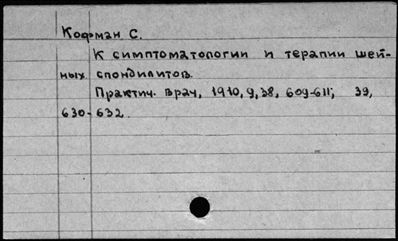 Кофман С.
К симптоматологии и терапии шей-
ных спондилитов.
Практич. врач, 1910, 9, 38, 609-611; 39,
630-632.